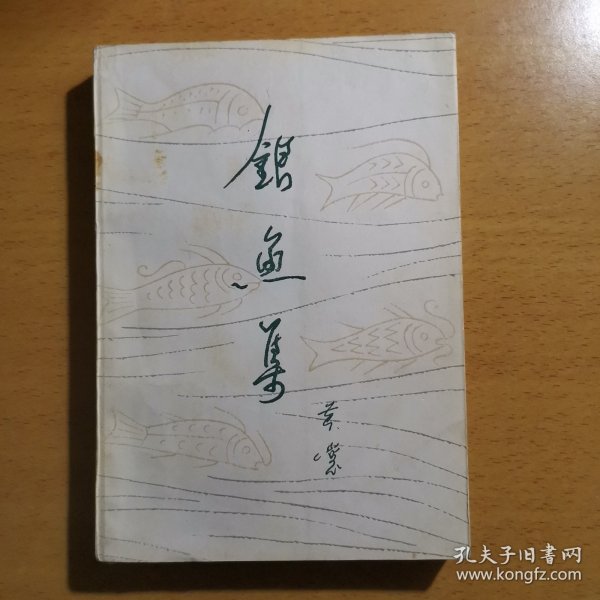 银鱼集
黄裳
孔夫子旧书网
www.kongfz.com